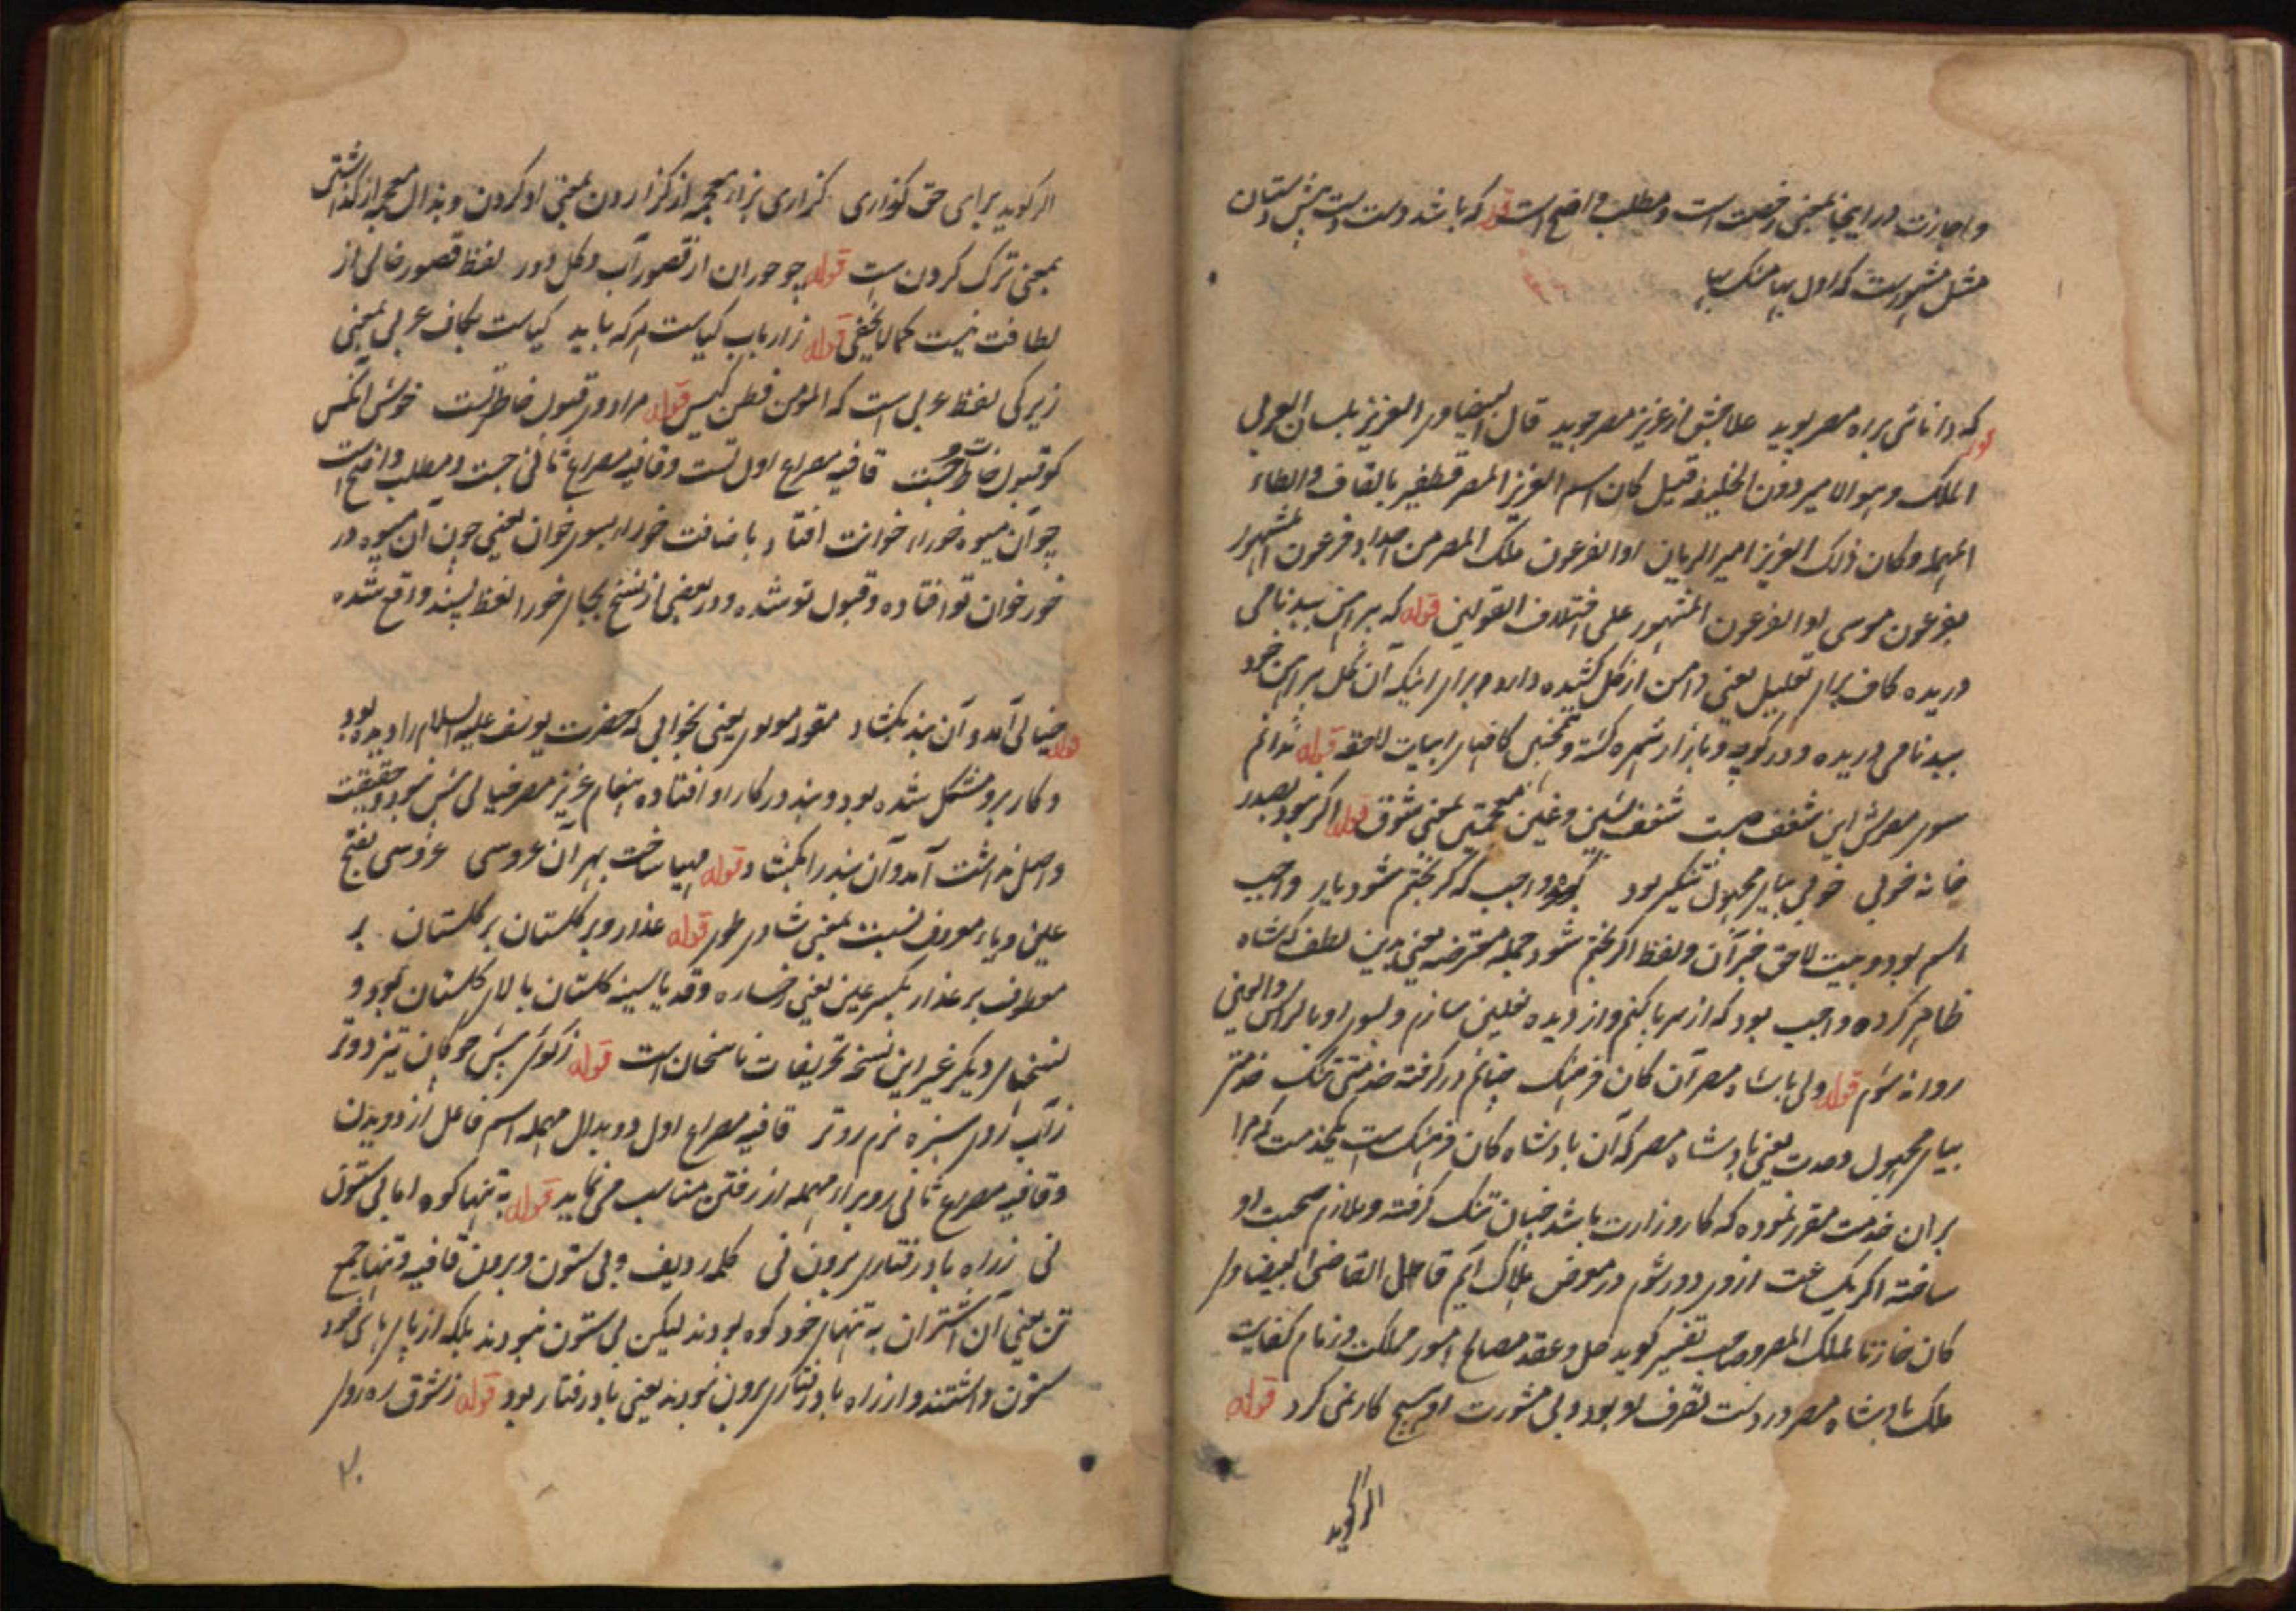 و اجازت در اینجا بمعنی رخصت است و مطلب واضح است قوله که باشد دست دست پیش دستان
مثل مشهورست که اول بیا
که دانائی براه مصر پوید علاجش از عزیز مصر جوید قال البیضاوی العزیز بلسان العربی
قوله
الملک و هو الامیر دون الخلیفه قیل کان اسم العزیز المصر قطفیر بالقاف والطاء
المهمله وکان ذلک العزیز امیر الریان اوالفرعون ملک المصر من اجداد فرعون المشهور
بفرعون موسی اوالفرعون المشهور علی اختلاف القولین قوله که پیراهن ببدنامی
دریده کاف برای تعلیل یعنی دامن از گل کشیده دارد برای اینکه آن گل پیراهن خود
ببدنامی دریده و در کوچه و بازار شهره گشته و همچنین کافهای ابیات لاحقه قوله ندانم
سوی مصرش این شغف چیست شغف بشین و غین معجمتین بمعنی شوق قوله اگر نبود بصدر
خانه خوبی خوبی بیای مجهول تنکیر بود قوله واجب که گر بختم شود یار واجب
اسم بود و بیت لاحق خبر آن و لفظ اگر بختم شود جمله معترضه یعنی بدین لطف که شاه
ظاهر کرده واجب بود که از سر پا کنم و از دیده نعلین سازم و بسوی او بالراس والعین
روانه شوم قوله ولی با شاه مصر آن کان فرهنگ چنانم در گرفته خدمتی تنگ خدمتی
بیای مجهول وحدت یعنی بادشاه مصر که آن بادشاه کان فرهنگ است بخدمت که مرا
بران خدمت مقرر نموده که کار وزارت باشد چنان تنگ گرفته و ملازم صحبت او
ساخته اگر یک ساعت از وی دور شوم در معرض هلاک آیم قال القاضی البیضاوی
کان خازنا لملک المصر و صاحب تفسیر گوید حل و عقد مصالح امور مملکت و زمام کفایت
ملک بادشاه مصر در دست تصرف او بود و بی مشورت او هیچ کار نمی کرد قوله
اگر گوید
اگر گوید برای حق گزاری گزاری بزاء معجمه از گزاردن بمعنی ادا کردن و بذال معجمه از گذاشتن
بمعنی ترک کردن است قوله چو حوران از قصور آب و گل دور لفظ قصور خالی از
لطافت نیست کما لا یخفی قوله ز ارباب کیاست هر که باید کیاست بکاف عربی بمعنی
زیرکی لفظ عربی است که المومن فطن کیس قوله مرا دور قبول خاطر تست خوش آنکس
کو قبول خاطرت جست قافیه مصراع اول تست و قافیه مصراع ثانی جست و مطلب واضح است
چو آن میوه خورای خوانت افتاد باضافت خورای بسوی خوان یعنی چون آن میوه در
خور خوان تو افتاده و قبول تو شده و در بعضی از نسخ بجای خورا لفظ پسند واقع شده
قوله خیالی آمد و آن بند بکشاد مقوله مولوی یعنی بخوابی که حضرت یوسف علیه السلام را دیده بود
و کار برو مشکل شده بود و بند در کار او افتاده پیغام عزیز مصر خیالی بیش نبود و حقیقت
واصل نداشت آمد و آن بند را بکشاد قوله مهیا ساخت بهر آن عروسی عروسی بفتح
عین و یاء معروف نسبت بمعنی شادی و طوی قوله عذار و بر گلستان بر گلستان بر
معطوف بر عذار بکسر عین یعنی رخساره و قد یا سینه گلستان بالای گلستان بود و
نسخهای دیگر غیر این نسخه تحریفات ناسخان است قوله ز گوی پیش چوگان تیز دوتر
ز آب روی سبزه نرم رو تر قافیه مصراع اول دو بدال مهمله اسم فاعل از دویدن
و قافیه مصراع ثانی رو برای مهمله از رفتن مناسب می نماید قوله به تنها کوه اما بی ستون
نی ز راه باد رفتاری برون نی کلمه ردیف و بی ستون و برون قافیه و تنها جمع
تن یعنی آن اشتران به تنهای خود کوه بودند لیکن بی ستون نبودند بلکه از پای های خود
ستون داشتند و از راه باد رفتاری برون نبودند یعنی باد رفتار بود قوله ز شوق ره روی